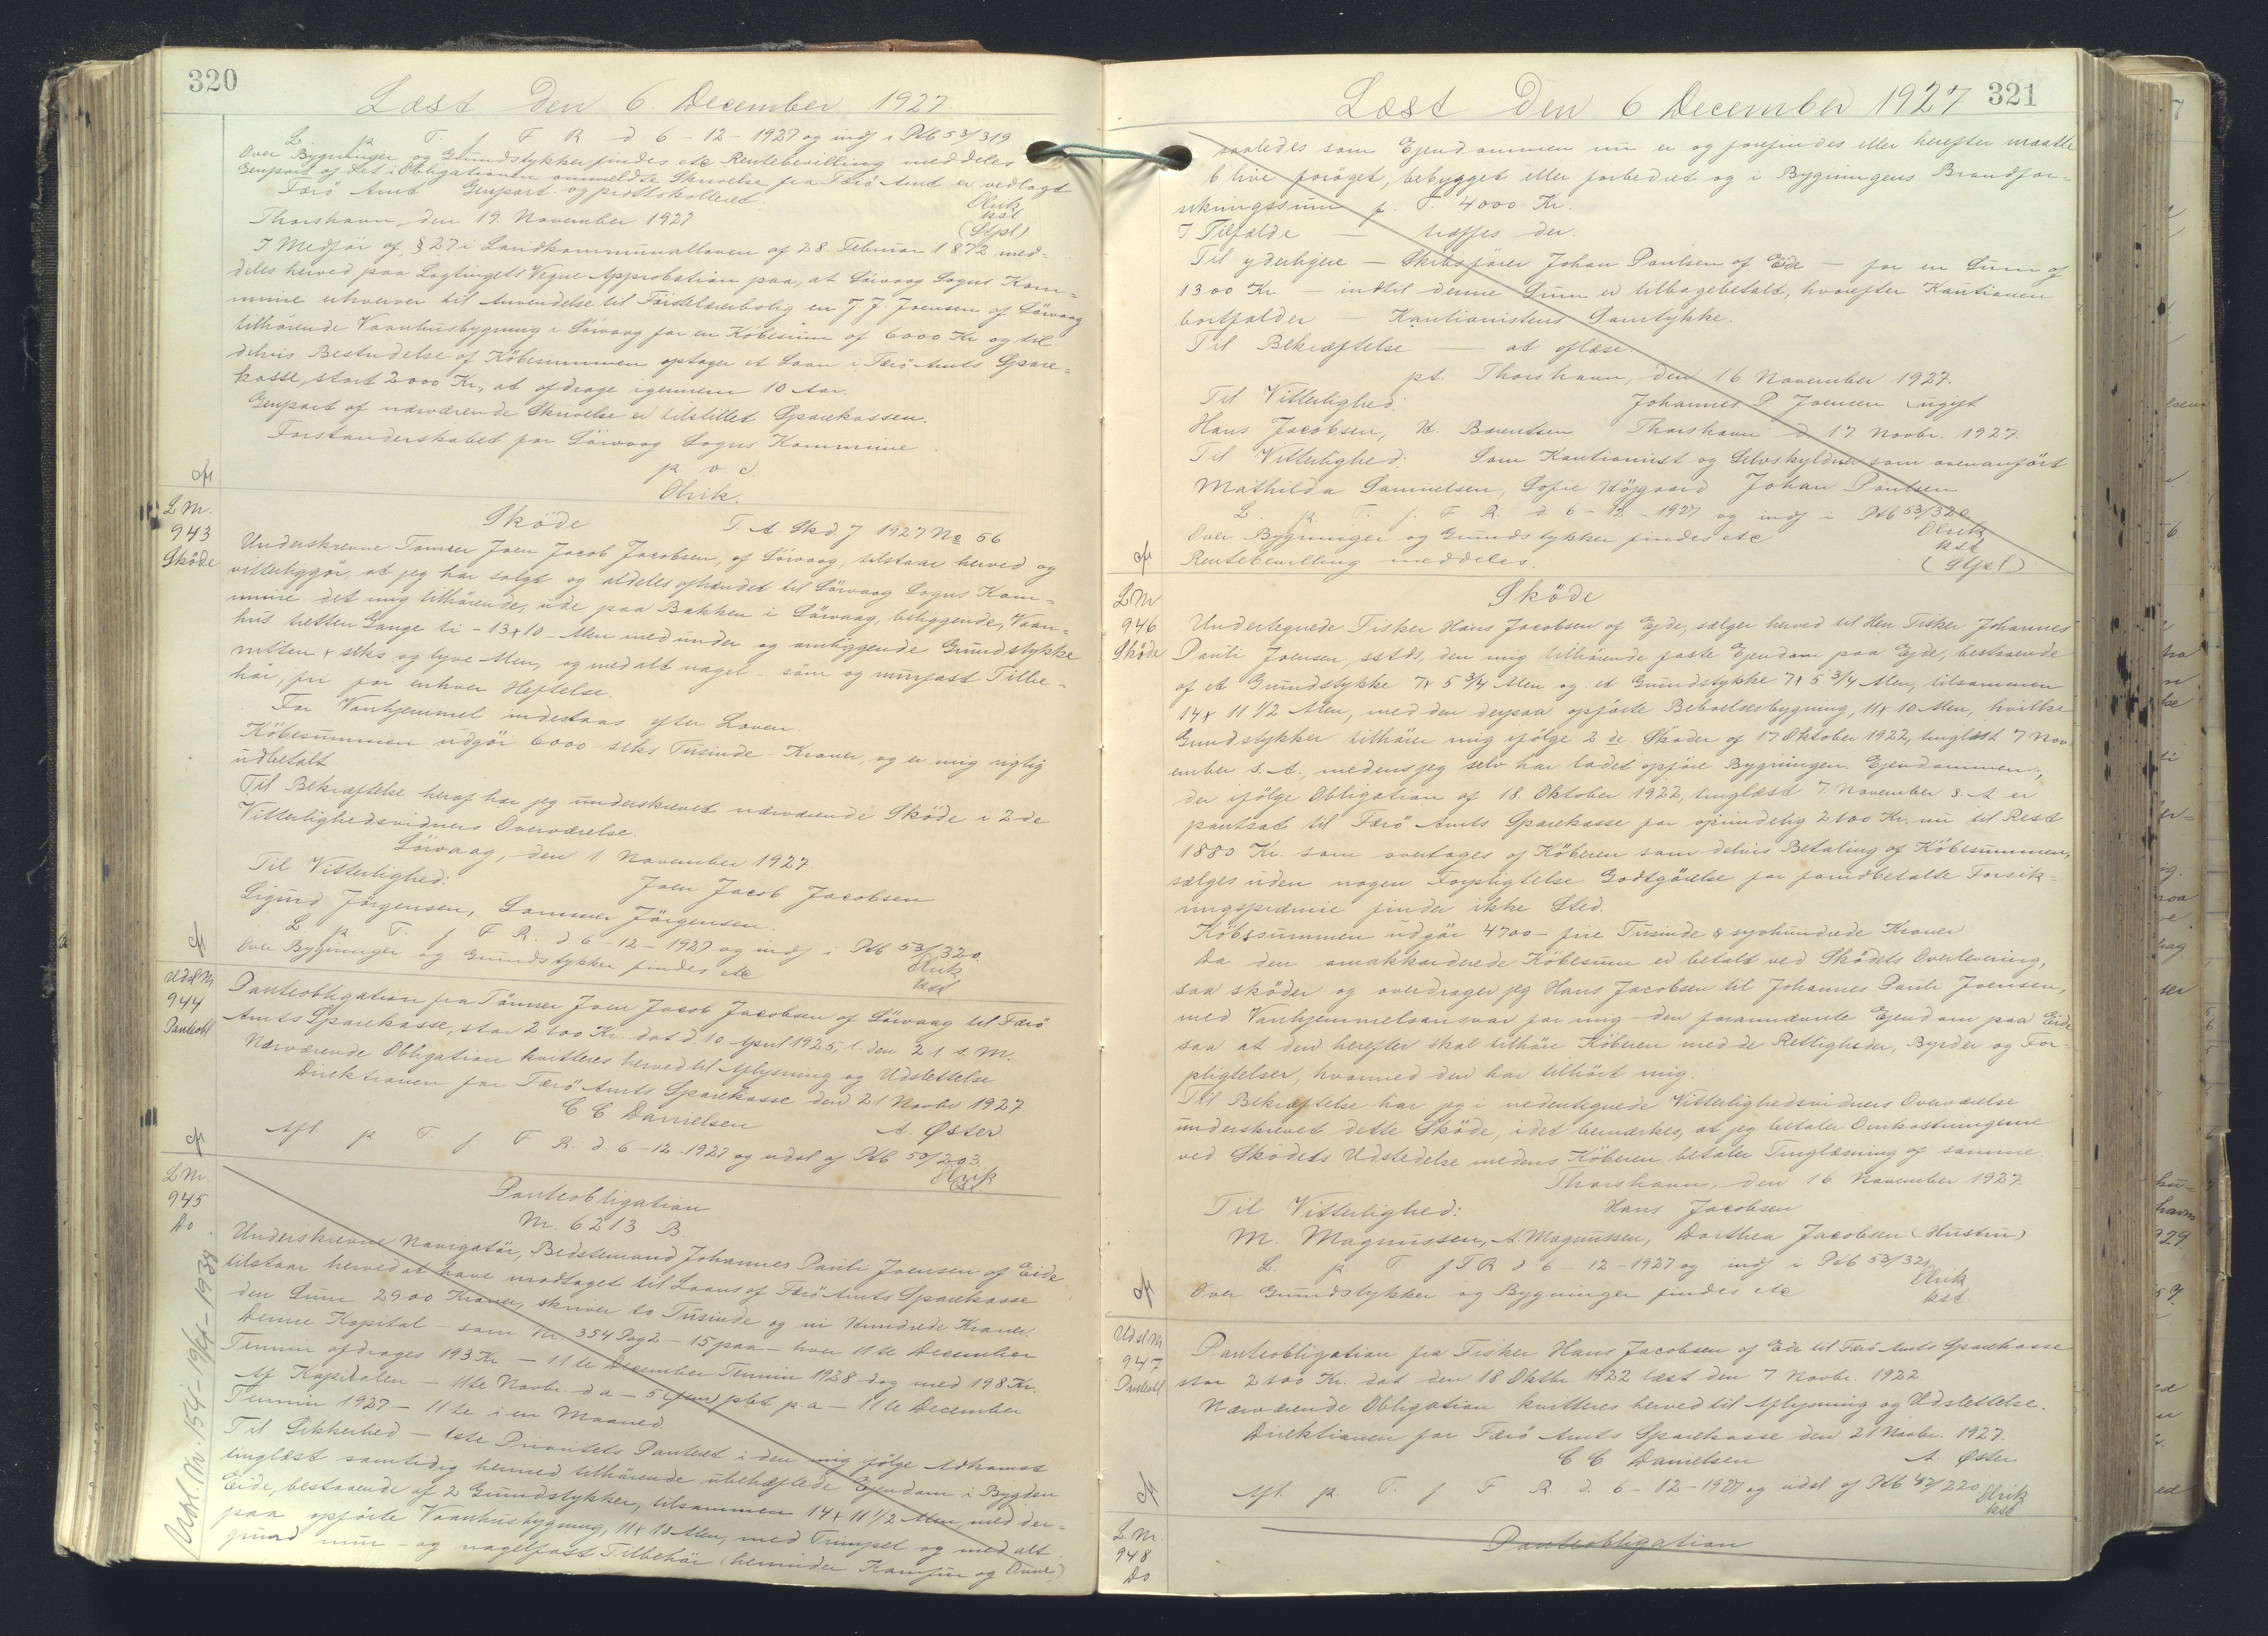 320
Læst Den 6. December 1927.
L. p. T. f. F R d 6 - 12 - 1927 og indf i Ptb 53/319
Over Bygninger og Grundstykker findes etc Rentebevilling meddeles
Genpart af det i Obligationen ommeldte Skrivelse fra Færö Amt er vedlagt
Olrik
kst
(Stpl)
Færö Amt Genpart og protokolleret.
Thorshavn den 19 November 1927
I Medför af § 27 i Landkommunalloven af 28 Februar 1872 med-
deles herved paa Lagtingets Vegne Approbation paa, at Sörvaag Sogns Kom-
mune erhverver til Anvendelse til Förstelærerbolig en J J Joensen af Sörvaag
tilhörende Vaanhusbygning i Sörvaag for en Köbesum af 6000 Kr og til
delvis Bestridelse af Köbesummen optager et Laan i Færö Amts Spare-
kasse, stort 2000 Kr., at afdrage igennem 10 Aar.
Genpart af nærværende Skrivelse er tilstillet Sparekassen.
Forstanderskabet for Sörvaag Sogns Kommune
p v d
Olrik.
L Nr.
943
Sköde
Sköde T. A. Skd J 1927 No 56
Underskrevne Tömrer Joen Jacob Jacobsen, af Sörvaag, tilstaar herved og
vitterliggör, at jeg har solgt og aldeles afhændet til Sörvaag Sogns Kom-
mune det mig tilhörende, ude paa Bakken i Sörvaag, beliggende, Vaan-
hus tretten Gange ti - 13 x 10 - Alen med under og omliggende Grundstykke
nitten x seks og tyve Alen, og med alt nagel - söm og murfast Tilbe-
hör, fri for enhver Heftelse.
For Vanhjemmel indestaas efter Loven.
Köbesummen udgör 6000 seks Tusinde - Kroner, og er mig rigtig
udbetalt
Til Bekræftelse heraf har jeg underskrevet nærværende Sköde i 2 de
Vitterlighedsvidners Overværelse.
Sörvaag, den 1. November 1927.
Til Vitterlighed: Joen Jacob Jacobsen
Sigurd Jörgensen, Sommer Jörgensen.
L p T. f F R. d 6 - 12 - 1927 og indf i Ptb 53/320.
Over Bygninger og Grundstykker findes etc
Olrik
kst
Udsl Nr
944
Panteobl
Panteobligation fra Tömrer Joen Jacob Jacobsen af Sörvaag til Færö
Amts Sparekasse, stor 2100 Kr. dat d. 10. April 1925, l. den 21 s. M.
Nærværende Obligation kvitteres herved til Aflysning og Udslettelse
Direktionen for Færö Amts Sparekasse den 21 Novbr 1927
C C Danielsen A. Øster
Afl. p T. f F R. d 6 - 12 - 1927 og udsl af Ptb 50/203.
Olrik
kst
L Nr.
945
Do
Udsl. Nr. 154 - 19/4 - 1938.
Panteobligation
Nr. 6213 B.
Underskrevne Navigatör, Bedstemand Johannes Pauli Joensen af Eide
tilstaar herved at have modtaget til Laans af Færö Amts Sparekasse
den Sum 2900 Kroner, skriver to Tusinde og ni Hundrede Kroner.
Denne Kapital - som Nr 354 Pag 2 - 15 paa - hver 11te December
Termin afdrages 193 Kr - 11te December Termin 1928 dog med 198 Kr.
Af Kapitalen - 11te Novbr d a - 5 (fem) pCt p. a - 11te December
Termin 1927 - 11te i en Maaned.
Til Sikkerhed - 1ste Prioritets Panteret i den mig ifölge Adkomst
tinglæst samtidig hermed tilhörende ubehæftede Ejendom i Bygden
Eide, bestaaende af 2 Grundstykker, tilsammen 14 x 11 1/2 Alen, med der-
paa opförte Vaanhusbygning, 11 x 10 Alen, med Tilbehör og med alt
grund mur - og nagelfast Tilbehör (herunder Komfur og Ovne)
321
Læst Den 6 December 1927
saaledes som Ejendommen nu er og forefindes eller herefter maatte
blive foröget, bebygget eller forbedret og i Bygningens Brandfor-
sikringssum p. T. 4000 Kr.
I Tilfælde - træffes der.
Til yderligere - Skibsförer Johan Poulsen af Eide - for en Sum af
1300 Kr - indtil denne Sum er tilbagebetalt, hvorefter Kautionen
bortfalder - Kautionistens Samtykke.
Til Bekræftelse - at oflæse.
pt. Thorshavn, den 16 November 1927.
Til Vitterlighed: Johannes P Joensen ugift
Hans Jacobsen, H. Barentsen Thorshavn d 17 Novbr. 1927.
Til Vitterlighed: Som Kautionist og Selvskyldner som ovenanfört
Mathilda Samuelsen, Sofie Höjgaard Johan Poulsen
L. p. T. f. F R. d 6 - 12 - 1927 og indf i Ptb 53/320
Over Bygninger og Grundstykker findes etc
Rentebevilling meddeles.
Olrik
kst
(Stpl)
L Nr
946
Sköde
Sköde
Undertegnede Fisker Hans Jacobsen af Ejde, sælger herved til Herr Fisker Johannes
Pauli Joensen, sstds, den mig tilhörende faste Ejendom paa Ejde, bestaaende
af et Grundstykke 7 x 5 3/4 Alen og et Grundstykke 7 x 5 3/4 Alen, tilsammen
14 x 11 1/2 Alen, med den derpaa opförte Beboelsesbygning, 11 x 10 Alen, hvilke
Grundstykker tilhörer mig ifölge 2 de Sköder af 17 Oktober 1922, tinglæst 7 Nov
ember s. A., medens jeg selv har ladet opföre Bygningen. Ejendommen,
der ifölge Obligation af 18. Oktober 1922, tinglæst 7. November s. A. er
pantsat til Færö Amts Sparekasse for oprindelig 2100 Kr. nu til Rest
1880 Kr. som overtages af Köberen som delvis Betaling af Köbesummen,
sælges uden nogen Forpligtelse Godtgörelse for forudbetalte Forsik-
ringspræmie finder ikke Sted.
Köbssummen udgör 4700 - fire Tusinde & syvhundrede Kroner
Da den omakkorderede Köbesum er betalt ved Sködets Overlevering,
saa sköder og overdrager jeg Hans Jacobsen til Johannes Pauli Joensen,
med Vanhjemmelsansvar for mig - den forannævnte Ejendom paa Eide
saa at den herefter skal tilhöre Köberen med de Rettigheder, Byrder og For-
pligtelser, hvormed den har tilhört mig.
Til Bekræftelse har jeg i nedentegnede Vitterlighedsvidners Overværelse
underskrevet dette Sköde, idet bemærkes, at jeg betaler Omkostningerne
ved Sködets Udstedelse medens Köberen betaler Tinglæsning af samme.
Thorshavn, den 16 November 1927.
Til Vitterlighed: Hans Jacobsen
M. Magnussen, A. Magnussen, Dorthea Jacobsen (Hustru)
L. p T f F R d 6 - 12 - 1927 og indf i Ptb 53/321
Over Grundstykker og Bygninger findes etc
Olrik
kst
Udsl Nr
947
Panteobl
Panteobligation fra Fisker Hans Jacobsen af Eide til Færö Amts Sparekasse
stor 2100 Kr. dat den 18 Oktbr 1922 læst den 7 Novbr. 1922
Nærværende Obligation kvitteres herved til Aflysning og Udslettelse.
Direktionen for Færö Amts Sparekasse den 21 Novbr. 1927.
C C Danielsen A Øster
Afl. p. T. f F R. d. 6 - 12 - 1927 og udsl af Ptb 47/220
Olrik
kst
L. Nr.
948
Do
Panteobligation